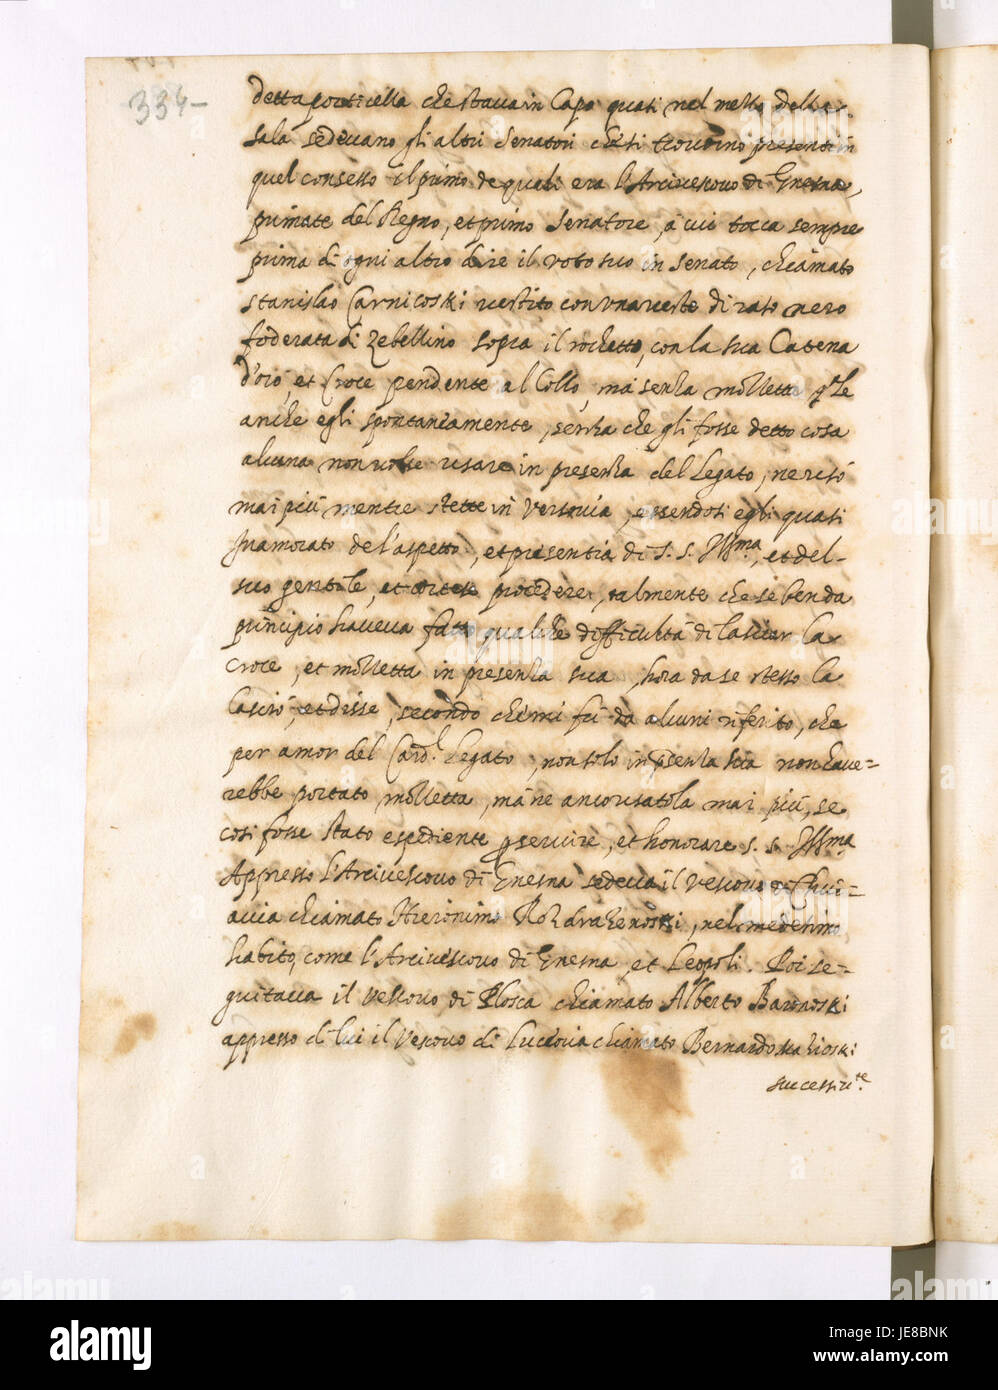 334-
detta porticella che stava in Capo quasi nel mezzo della
sala sedevano gli altri Senatori che si trovorno presenti in
quel consesso il primo de quali era l'Arcivescovo di Gnesna,
primate del Regno, et primo Senatore, à cui tocca sempre
prima di ogni altro dire il voto suo in Senato, chiamato
Stanislao Carnicoski vestito con una veste di raso nero
foderata di Zebellino sopra il rochetto, con la sua Catena
d'oro, et Croce pendente al Collo, ma senza mozzetta q.le
anche egli spontaniamente, senza che gli fosse detto cosa
alcuna non volse usare in presenza del Legato, ne usò
mai più mentre stette in Versavia, essendosi egli quasi
Inamorato de l'aspetto, et presentia di S. S. Ill.ma, et del
suo gentile, et cortese procedere, talmente che se ben da
principio haveva fatto qualche difficultà di lasciar la
Croce, et mozzetta in presenza sua, hora da se stesso la
lasciò, et disse, secondo che mi fù da alcuni riferito, che
per amor del Card.l Legato, non solo in presenza sua non have=
rebbe portato mozzetta, mà ne anco usatola mai più, se
cosi fosse stato espediente p servire, et honorare S. S. Ill.ma
Appresso l'Arcivescovo di Gnesna sedeva il Vescovo di Cuia=
via chiamato Hieronimo Rozdrazenoski, nel medesimo
habito, come l'Arcivescovo di Gnesna, et Leopoli. Poi se=
guitava il Vescovo di Plosca chiamato Alberto Baronoski
appresso di lui il Vescovo di Luceoria chiamato Bernardo
successiv.te
alamy
JE8BNK
www.alamy.com